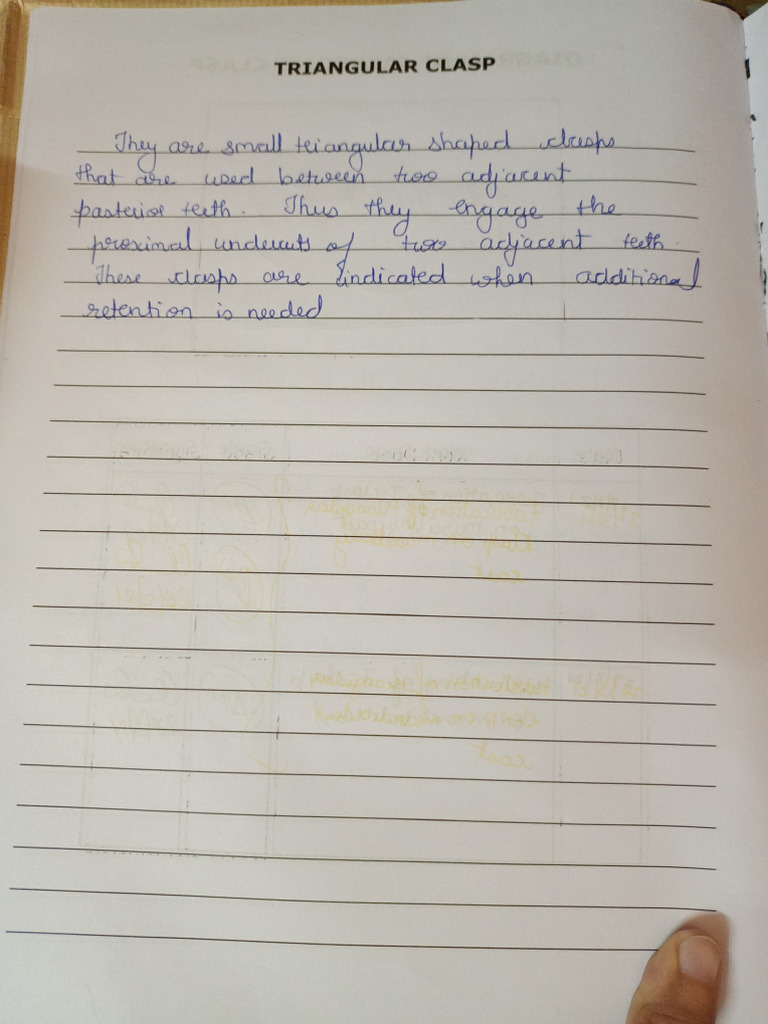 TRIANGULAR CLASP
They are small triangular shaped clasps
that are used between two adjacent
pasterior teeth. Thus they engage the
proximal undercuts of two adjacent teeth.
These clasps are indicated when additional
retention is needed